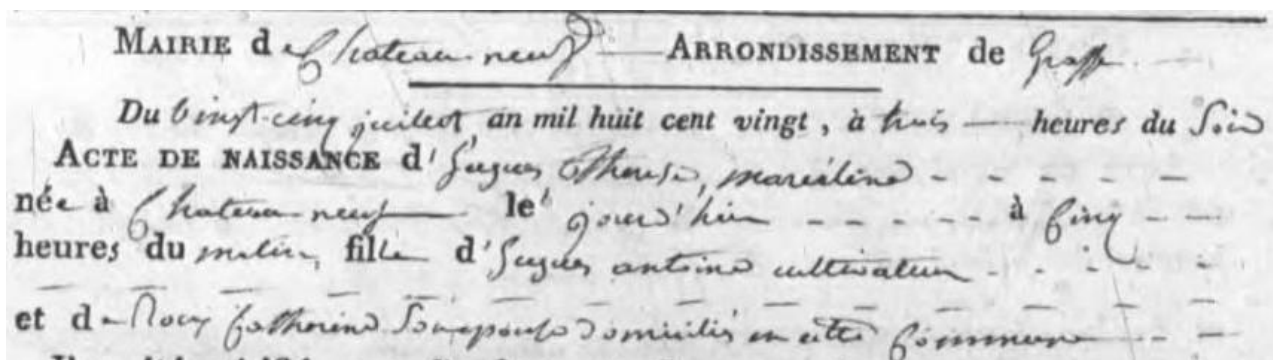 MAIRIE de Chateauneuf — ARRONDISSEMENT de Grasse
Du vingt-cinq juillet, an mil huit cent vingt, à trois — heures du Soir
ACTE DE NAISSANCE d' hugues Therese, - - - - -
née à Chateauneuf le jourd'hui - - - - - à Cinq - -
heures du matin, fille d'hugues antoine cultivateur - - - - -
et de Roux Catherine Son epouse domicilies en cette Commune - -